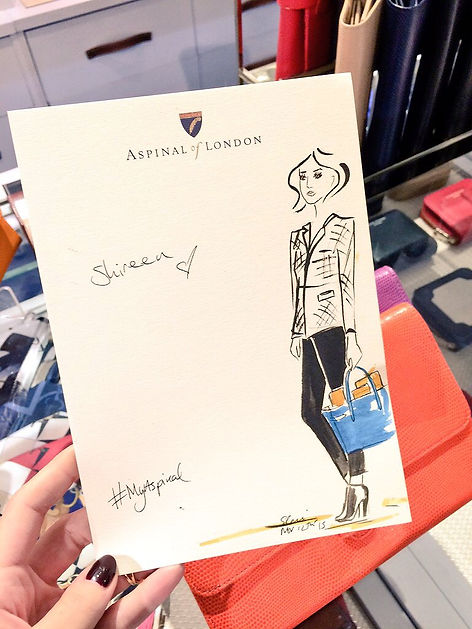 ASPINAL of LONDON
Shireen
#MyAspinal